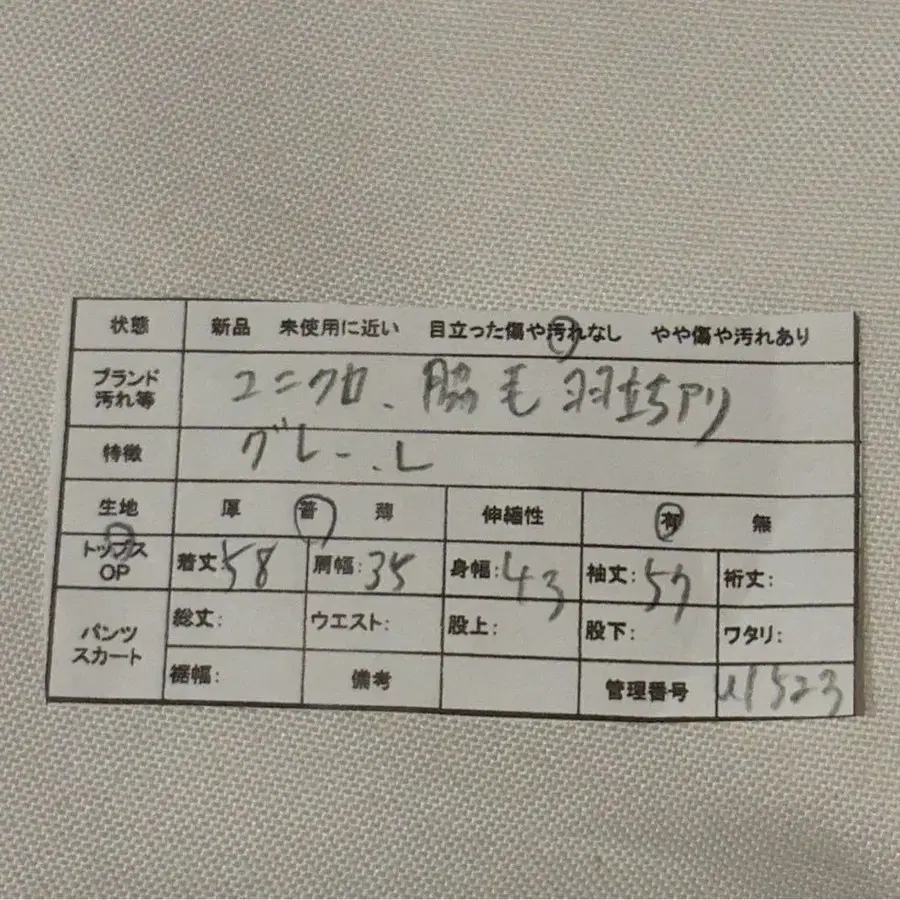 状態 新品 未使用に近い 目立った傷や汚れなし やや傷や汚れあり
ブランド 汚れ等 ユニクロ、脇毛羽立ちアリ
特徴 グレー、L
生地 厚 普 薄 伸縮性 有 無
トップス OP 着丈58 肩幅:35 身幅:43 袖丈:57 裄丈:
パンツ スカート 総丈: ウエスト: 股上: 股下: ワタリ:
裾幅: 備考 管理番号 1523